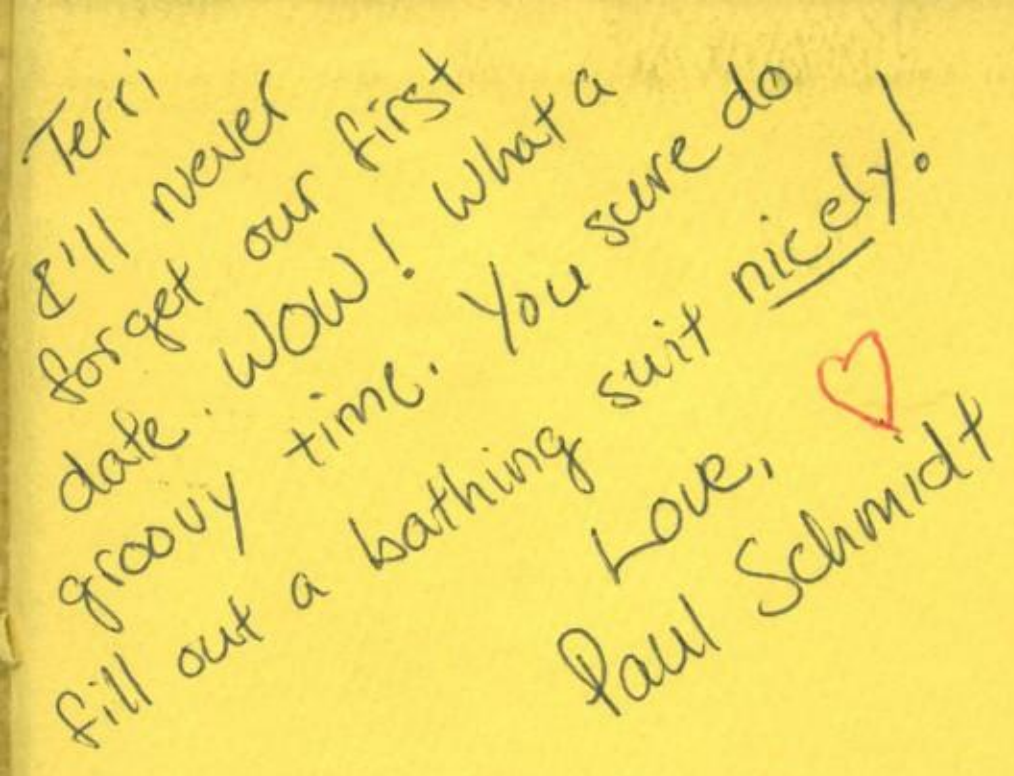 Terri
I'll never
forget our first
date. WOW! What a
groovy time. You sure do
fill out a bathing suit nicely!
Love,
Paul Schmidt